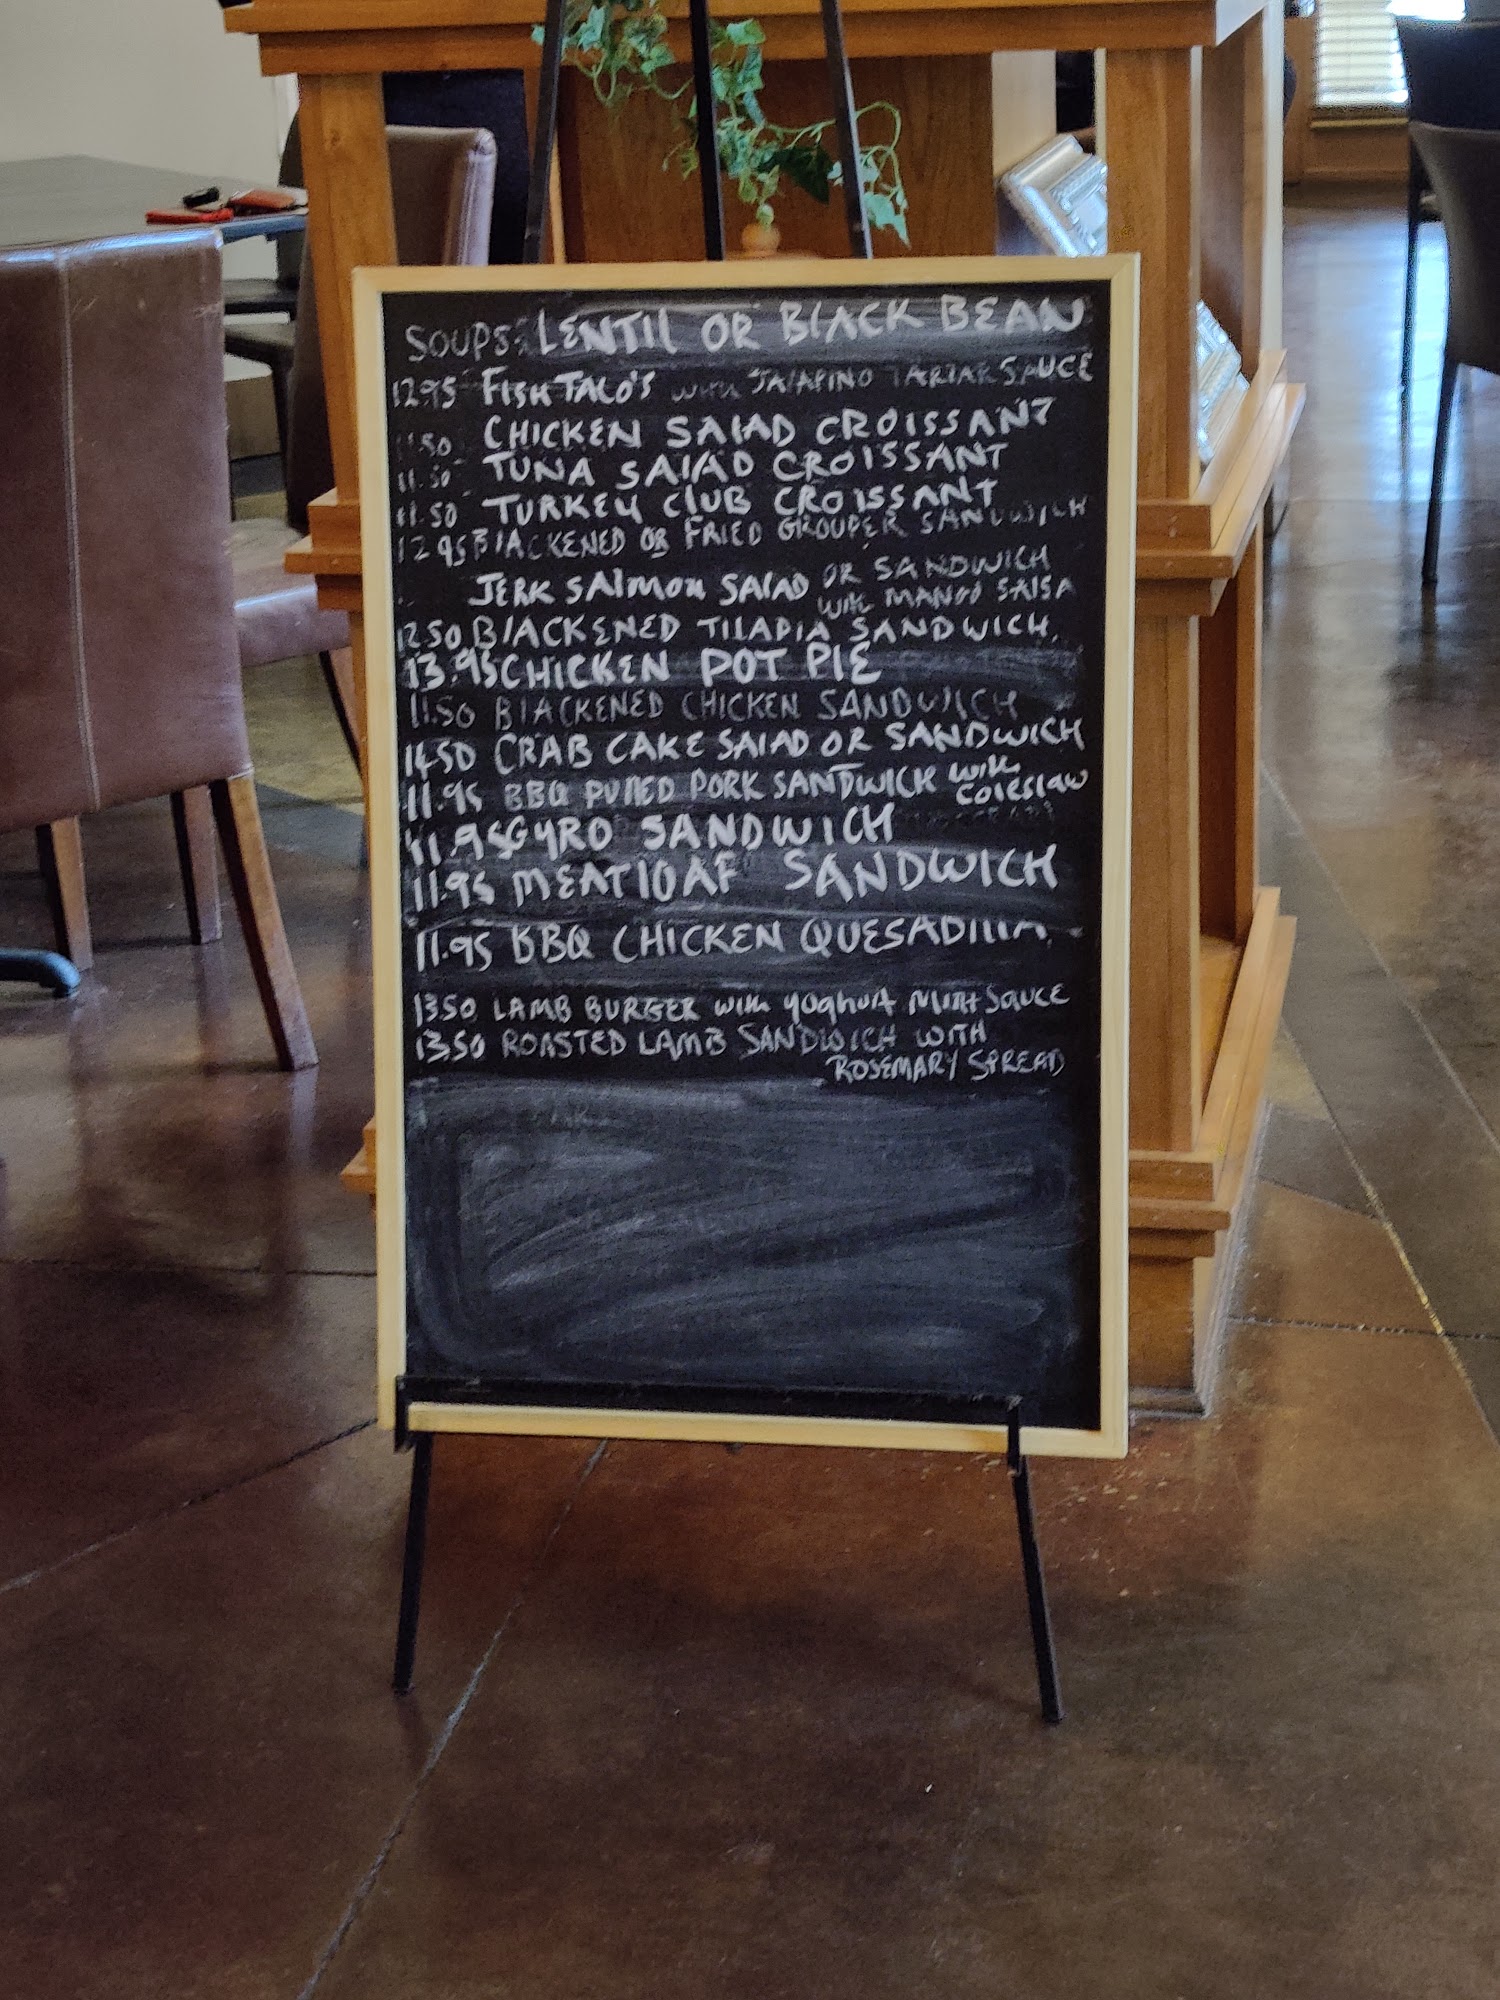 SOUPS: LENTIL OR BLACK BEAN
12.95 FISH TACO'S with JALAPINO TARTAR SAUCE
11.50 CHICKEN SALAD CROISSANT
11.50 TUNA SALAD CROISSANT
11.50 TURKEY CLUB CROISSANT
12.95 BLACKENED OR FRIED GROUPER SANDWICH
JERK SALMON SALAD OR SANDWICH
with MANGO SALSA
12.50 BLACKENED TILAPIA SANDWICH.
13.95 CHICKEN POT PIE
11.50 BLACKENED CHICKEN SANDWICH
CRAB CAKE SALAD OR SANDWICH
11.95 BBQ PULLED PORK SANDWICH with
Coleslaw
11.95 GYRO SANDWICH
11.95 MEATLOAF SANDWICH
11.95 BBQ CHICKEN QUESADILLA
13.50 LAMB BURGER with yoghurt MINT SAUCE
13.50 ROASTED LAMB SANDWICH WITH
ROSEMARY SPREAD